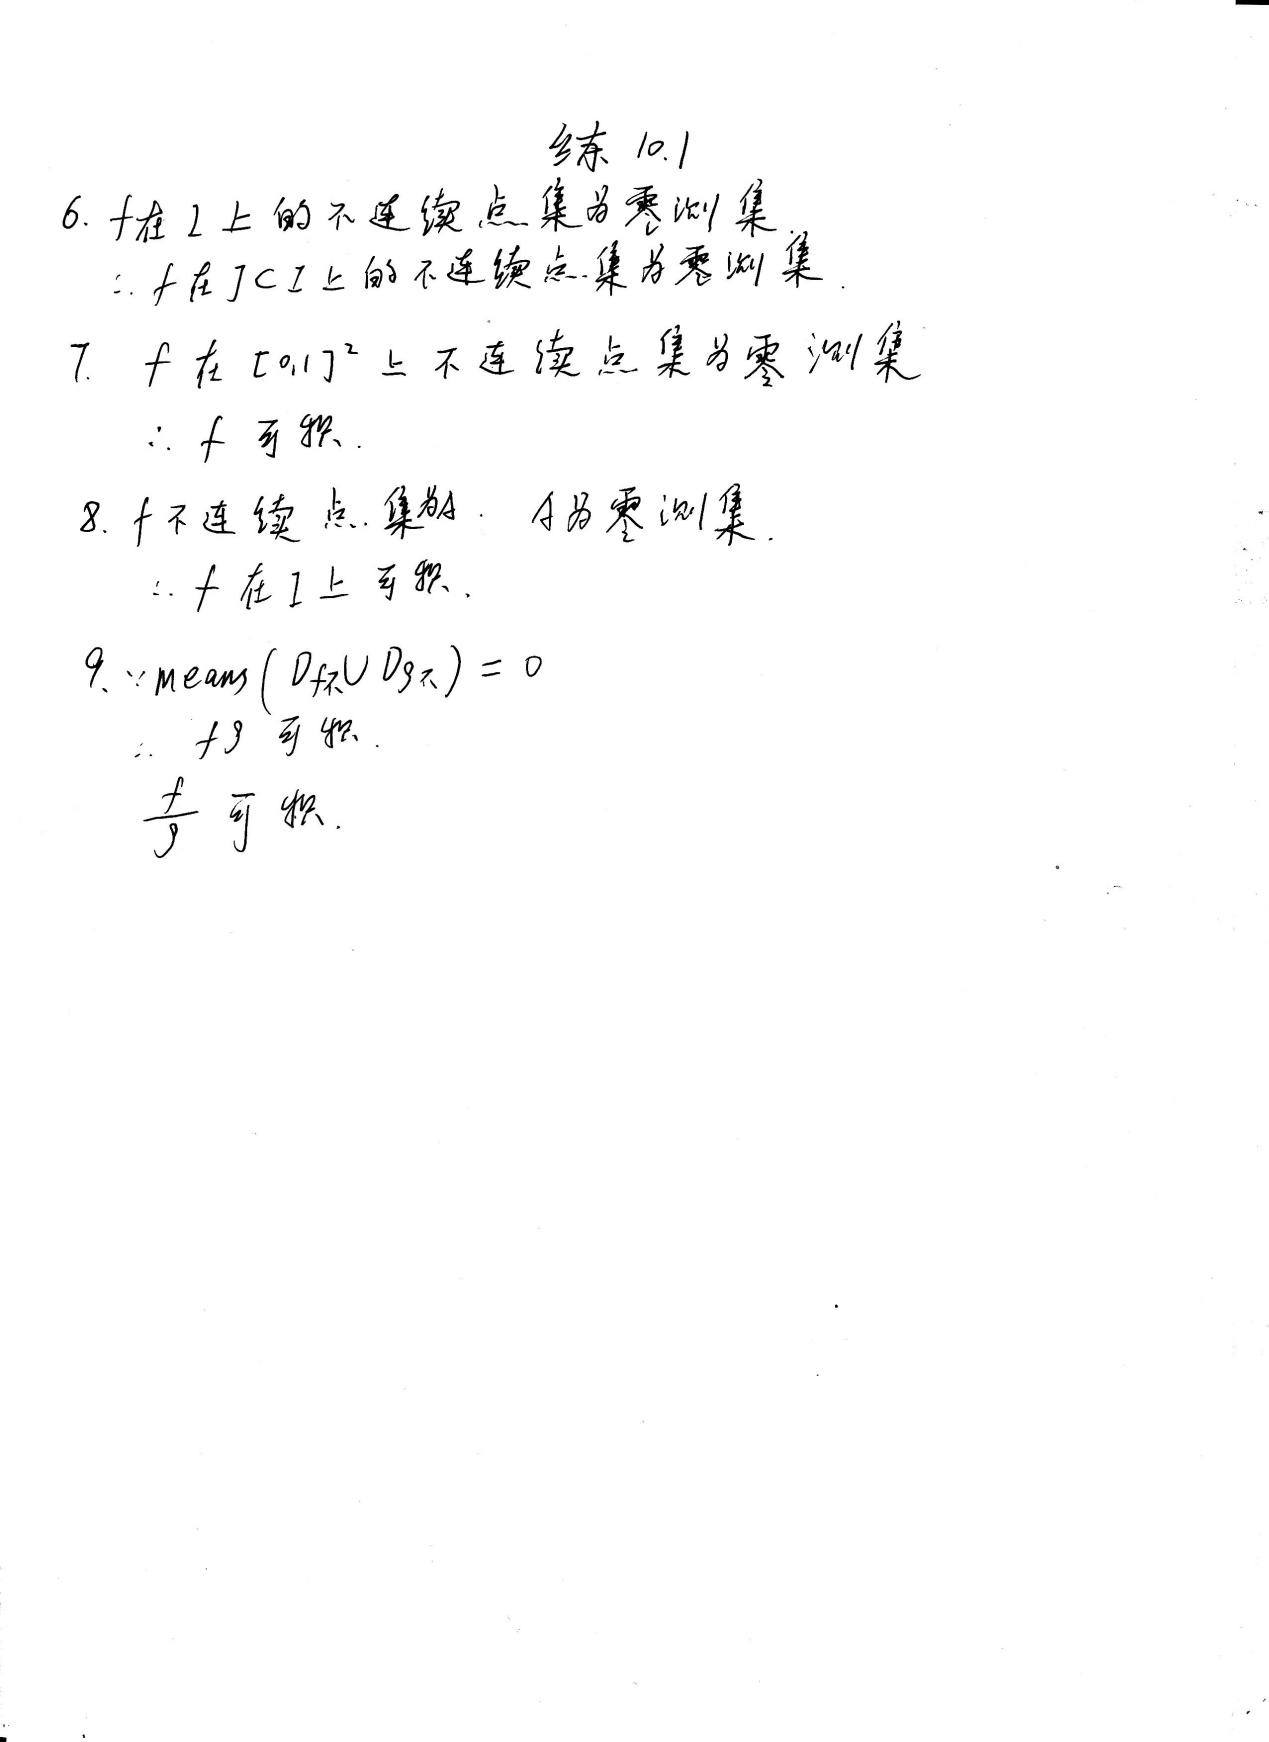 练 10.1
6. f在I上的不连续点集为零测集.
∴ f在J⊂I上的不连续点集为零测集.
7. f在[0,1]²上不连续点集为零测集
∴ f可积.
8. f不连续点集为A. A为零测集.
∴ f在I上可积.
9. ∵ means(Df不∪Dg不)=0
∴ fg可积.
f/g 可积.